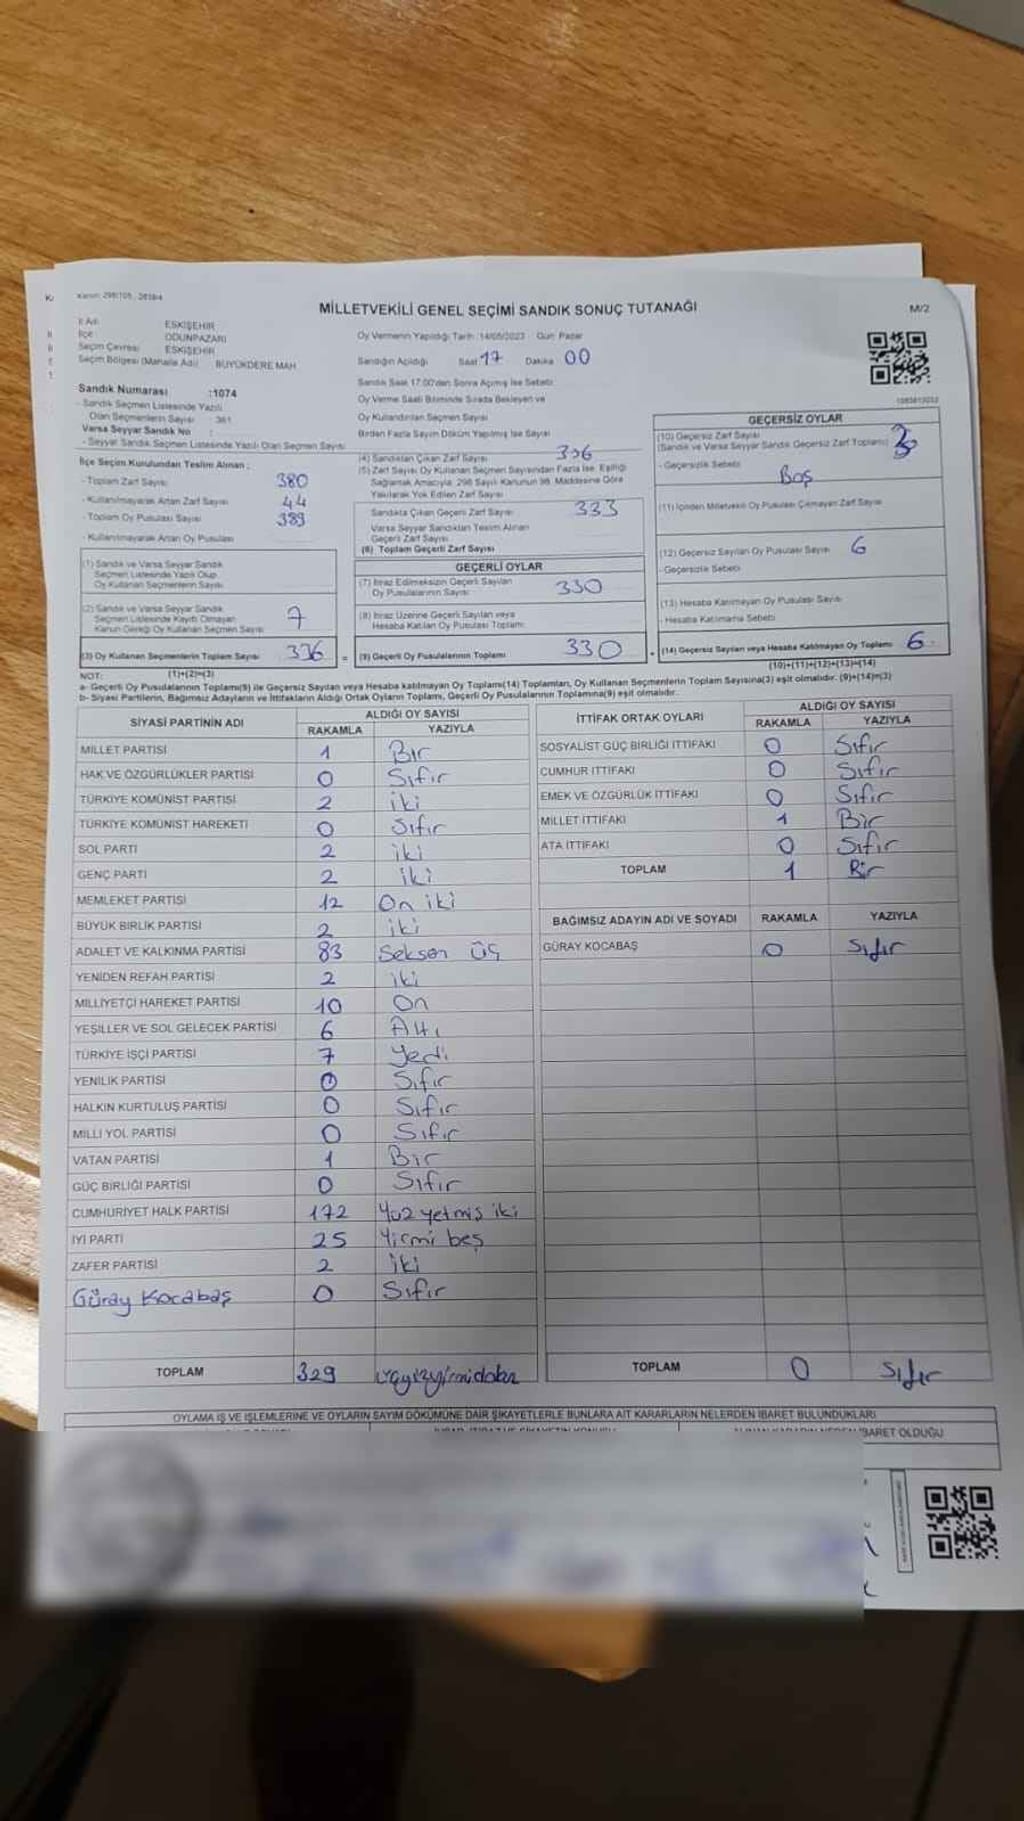 Kanun: 298/105 , 2839/4
MİLLETVEKİLİ GENEL SEÇİMİ SANDIK SONUÇ TUTANAĞI
M/2
İl Adı ESKİŞEHİR
İlçe ODUNPAZARI
Seçim Çevresi ESKİŞEHİR
Seçim Bölgesi (Mahalle Adı) BÜYÜKDERE MAH
Sandık Numarası :1074
- Sandık Seçmen Listesinde Yazılı
Olan Seçmenlerin Sayısı : 361
Varsa Seyyar Sandık No :
- Seyyar Sandık Seçmen Listesinde Yazılı Olan Seçmen Sayısı
İlçe Seçim Kurulundan Teslim Alınan :
- Toplam Zarf Sayısı 380
- Kullanılmayarak Artan Zarf Sayısı 44
- Toplam Oy Pusulası Sayısı 389
- Kullanılmayarak Artan Oy Pusulası
(1) Sandık ve Varsa Seyyar Sandık
Seçmen Listesinde Yazılı Olup
Oy Kullanan Seçmenlerin Sayısı
(2) Sandık ve Varsa Seyyar Sandık
Seçmen Listesinde Kayıtlı Olmayan
Kanun Gereği Oy Kullanan Seçmen Sayısı 7
(3) Oy Kullanan Seçmenlerin Toplam Sayısı 336 =
(1)+(2)=(3)
Oy Vermenin Yapıldığı Tarih : 14/05/2023 Gün: Pazar
Sandığın Açıldığı Saat 17 Dakika 00
Sandık Saat 17.00'dan Sonra Açılmış İse Sebebi
Oy Verme Saati Bitiminde Sırada Bekleyen ve
Oy Kullandırılan Seçmen Sayısı
Birden Fazla Sayım Döküm Yapılmış İse Sayısı
(4) Sandıktan Çıkan Zarf Sayısı 336
(5) Zarf Sayısı Oy Kullanan Seçmen Sayısından Fazla İse, Eşitliği
Sağlamak Amacıyla, 298 Sayılı Kanunun 98. Maddesine Göre
Yakılarak Yok Edilen Zarf Sayısı
Sandıkta Çıkan Geçerli Zarf Sayısı 333
Varsa Seyyar Sandıktan Teslim Alınan
Geçerli Zarf Sayısı
(6) Toplam Geçerli Zarf Sayısı
GEÇERLİ OYLAR
(7) İtiraz Edilmeksizin Geçerli Sayılan
Oy Pusulalarının Sayısı 330
(8) İtiraz Üzerine Geçerli Sayılan veya
Hesaba Katılan Oy Pusulası Toplamı
(9) Geçerli Oy Pusulalarının Toplamı 330 +
GEÇERSİZ OYLAR
(10) Geçersiz Zarf Sayısı
(Sandık ve Varsa Seyyar Sandık Geçersiz Zarf Toplamı) 3
- Geçersizlik Sebebi Boş
(11) İçinden Milletvekili Oy Pusulası Çıkmayan Zarf Sayısı
(12) Geçersiz Sayılan Oy Pusulası Sayısı 6
- Geçersizlik Sebebi
(13) Hesaba Katılmayan Oy Pusulası Sayısı
- Hesaba Katılmama Sebebi
(14) Geçersiz Sayılan veya Hesaba Katılmayan Oy Toplamı 6
(10)+(11)+(12)+(13)=(14)
NOT:
a- Geçerli Oy Pusulalarının Toplamı(9) ile Geçersiz Sayılan veya Hesaba katılmayan Oy Toplamı(14) Toplamları, Oy Kullanan Seçmenlerin Toplam Sayısına(3) eşit olmalıdır. (9)+(14)=(3)
b- Siyasi Partilerin, Bağımsız Adayların ve İttifakların Aldığı Ortak Oyların Toplamı, Geçerli Oy Pusulalarının Toplamına(9) eşit olmalıdır.
SİYASİ PARTİNİN ADI ALDIĞI OY SAYISI
RAKAMLA YAZIYLA
MİLLET PARTİSİ 1 Bir
HAK VE ÖZGÜRLÜKLER PARTİSİ 0 Sıfır
TÜRKİYE KOMÜNİST PARTİSİ 2 iki
TÜRKİYE KOMÜNİST HAREKETİ 0 Sıfır
SOL PARTİ 2 iki
GENÇ PARTİ 2 iki
MEMLEKET PARTİSİ 12 On iki
BÜYÜK BİRLİK PARTİSİ 2 iki
ADALET VE KALKINMA PARTİSİ 83 Seksen üç
YENİDEN REFAH PARTİSİ 2 iki
MİLLİYETÇİ HAREKET PARTİSİ 10 On
YEŞİLLER VE SOL GELECEK PARTİSİ 6 Altı
TÜRKİYE İŞÇİ PARTİSİ 7 Yedi
YENİLİK PARTİSİ 0 Sıfır
HALKIN KURTULUŞ PARTİSİ 0 Sıfır
MİLLİ YOL PARTİSİ 0 Sıfır
VATAN PARTİSİ 1 Bir
GÜÇ BİRLİĞİ PARTİSİ 0 Sıfır
CUMHURİYET HALK PARTİSİ 172 Yüz yetmiş iki
İYİ PARTİ 25 Yirmi beş
ZAFER PARTİSİ 2 iki
Güray Kocabaş 0 Sıfır
TOPLAM 329 üçyüzyirmidokuz
İTTİFAK ORTAK OYLARI ALDIĞI OY SAYISI
RAKAMLA YAZIYLA
SOSYALİST GÜÇ BİRLİĞİ İTTİFAKI 0 Sıfır
CUMHUR İTTİFAKI 0 Sıfır
EMEK VE ÖZGÜRLÜK İTTİFAKI 0 Sıfır
MİLLET İTTİFAKI 1 Bir
ATA İTTİFAKI 0 Sıfır
TOPLAM 1 Bir
BAĞIMSIZ ADAYIN ADI VE SOYADI RAKAMLA YAZIYLA
GÜRAY KOCABAŞ 0 Sıfır
TOPLAM 0 Sıfır
OYLAMA İŞ VE İŞLEMLERİNE VE OYLARIN SAYIM DÖKÜMÜNE DAİR ŞİKAYETLERLE BUNLARA AİT KARARLARIN NELERDEN İBARET BULUNDUKLARI
İBARET OLDUĞU